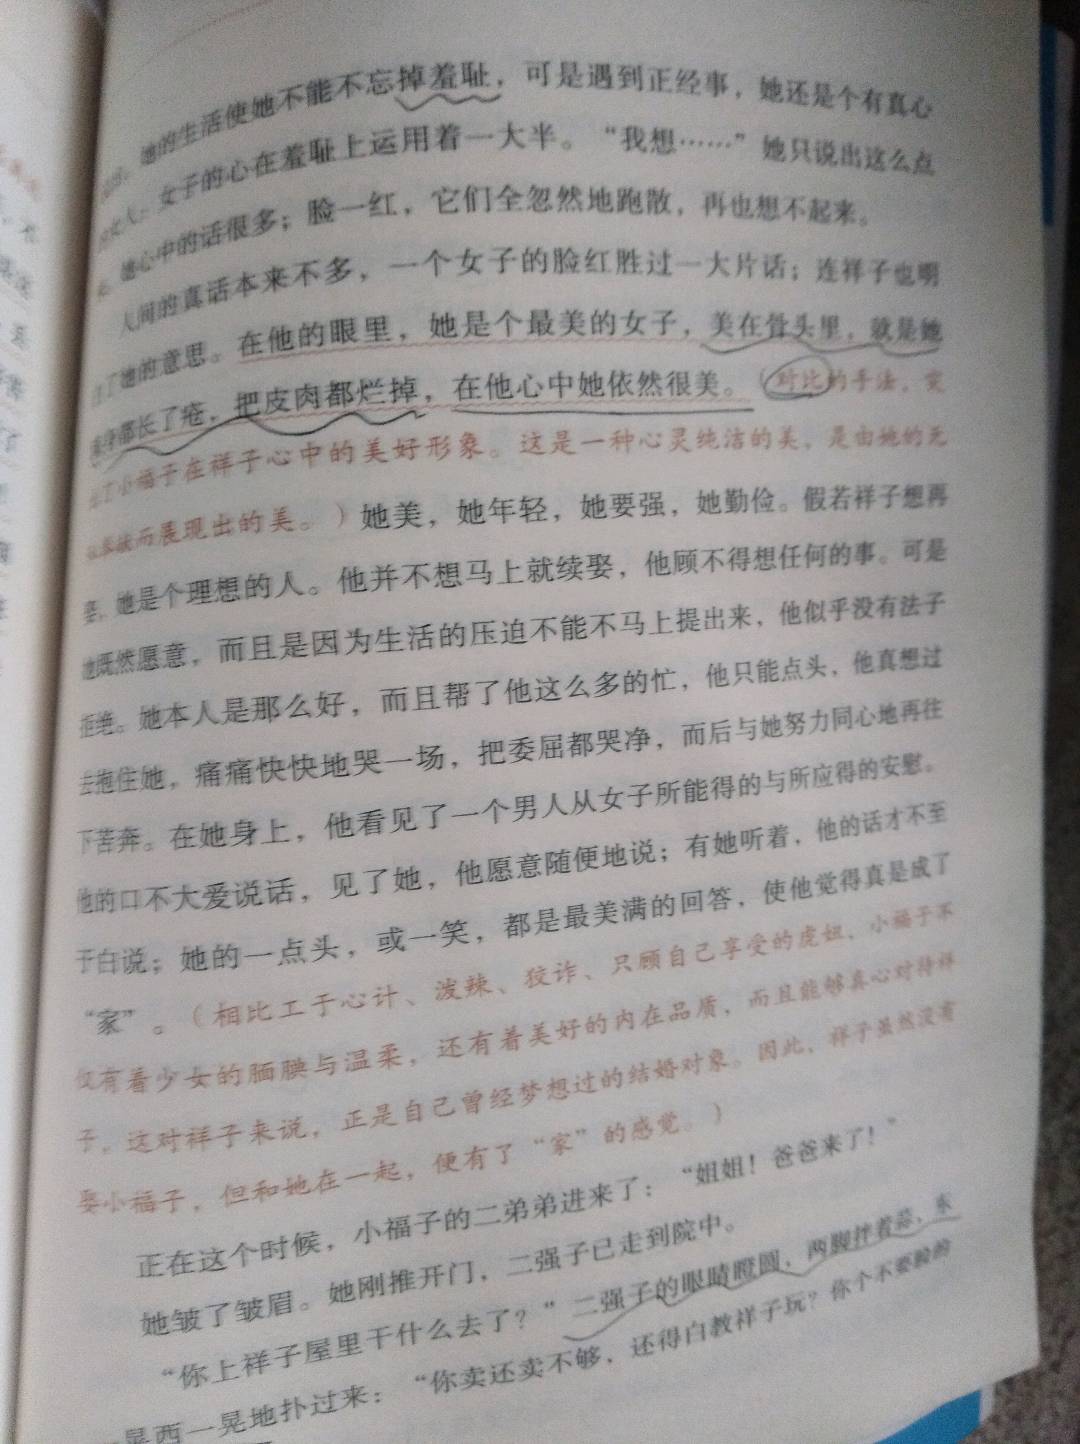 她的生活使她不能不忘掉羞耻，可是遇到正经事，她还是个有真心
的女人；女子的心在羞耻上运用着一大半。“我想……”她只说出这么点
来。她心中的话很多；脸一红，它们全忽然地跑散，再也想不起来。
人间的真话本来不多，一个女子的脸红胜过一大片话；连祥子也明
白了她的意思。在他的眼里，她是个最美的女子，美在骨头里，就是她
满身都长了疮，把皮肉都烂掉，在他心中她依然很美。（对比的手法，突
出了小福子在祥子心中的美好形象。这是一种心灵纯洁的美，是由她的无
而展现出的美。）她美，她年轻，她要强，她勤俭。假若祥子想再
娶，她是个理想的人。他并不想马上就续娶，他顾不得想任何的事。可是
她既然愿意，而且是因为生活的压迫不能不马上提出来，他似乎没有法子
拒绝。她本人是那么好，而且帮了他这么多的忙，他只能点头，他真想过
去抱住她，痛痛快快地哭一场，把委屈都哭净，而后与她努力同心地再往
下苦奔。在她身上，他看见了一个男人从女子所能得的与所应得的安慰。
他的口不大爱说话，见了她，他愿意随便地说；有她听着，他的话才不至
于白说；她的一点头，或一笑，都是最美满的回答，使他觉得真是成了
“家”。（相比工于心计、泼辣、狡诈、只顾自己享受的虎妞，小福子不
仅有着少女的腼腆与温柔，还有着美好的内在品质，而且能够真心对待祥
子，这对祥子来说，正是自己曾经梦想过的结婚对象。因此，祥子虽然没有
娶小福子，但和她在一起，便有了“家”的感觉。）
正在这个时候，小福子的二弟弟进来了：“姐姐！爸爸来了！”
她皱了皱眉。她刚推开门，二强子已走到院中。
“你上祥子屋里干什么去了？”二强子的眼睛瞪圆，两脚拌着蒜，东
一晃西一晃地扑过来：“你卖还卖不够，还得白教祥子玩？你个不要脸的